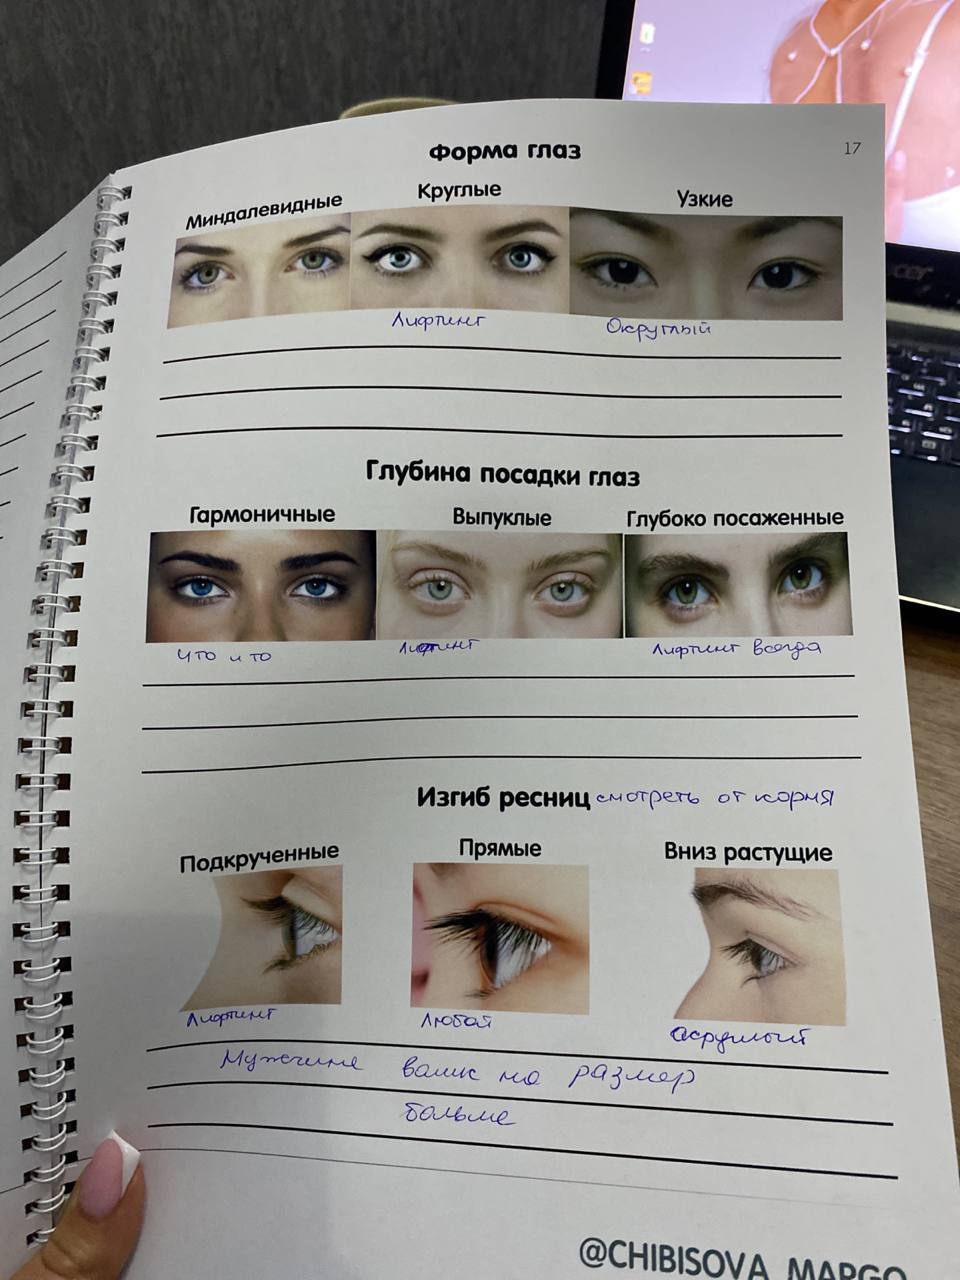 17
Форма глаз
Миндалевидные Круглые Узкие
Лифтинг Округлый
Глубина посадки глаз
Гармоничные Выпуклые Глубоко посаженные
что и то Лифтинг Лифтинг всегда
Изгиб ресниц смотреть от корня
Подкрученные Прямые Вниз растущие
Лифтинг Любой Округлый
Мужчине валик на размер
больше
@CHIBISOVA_MARGO
acer